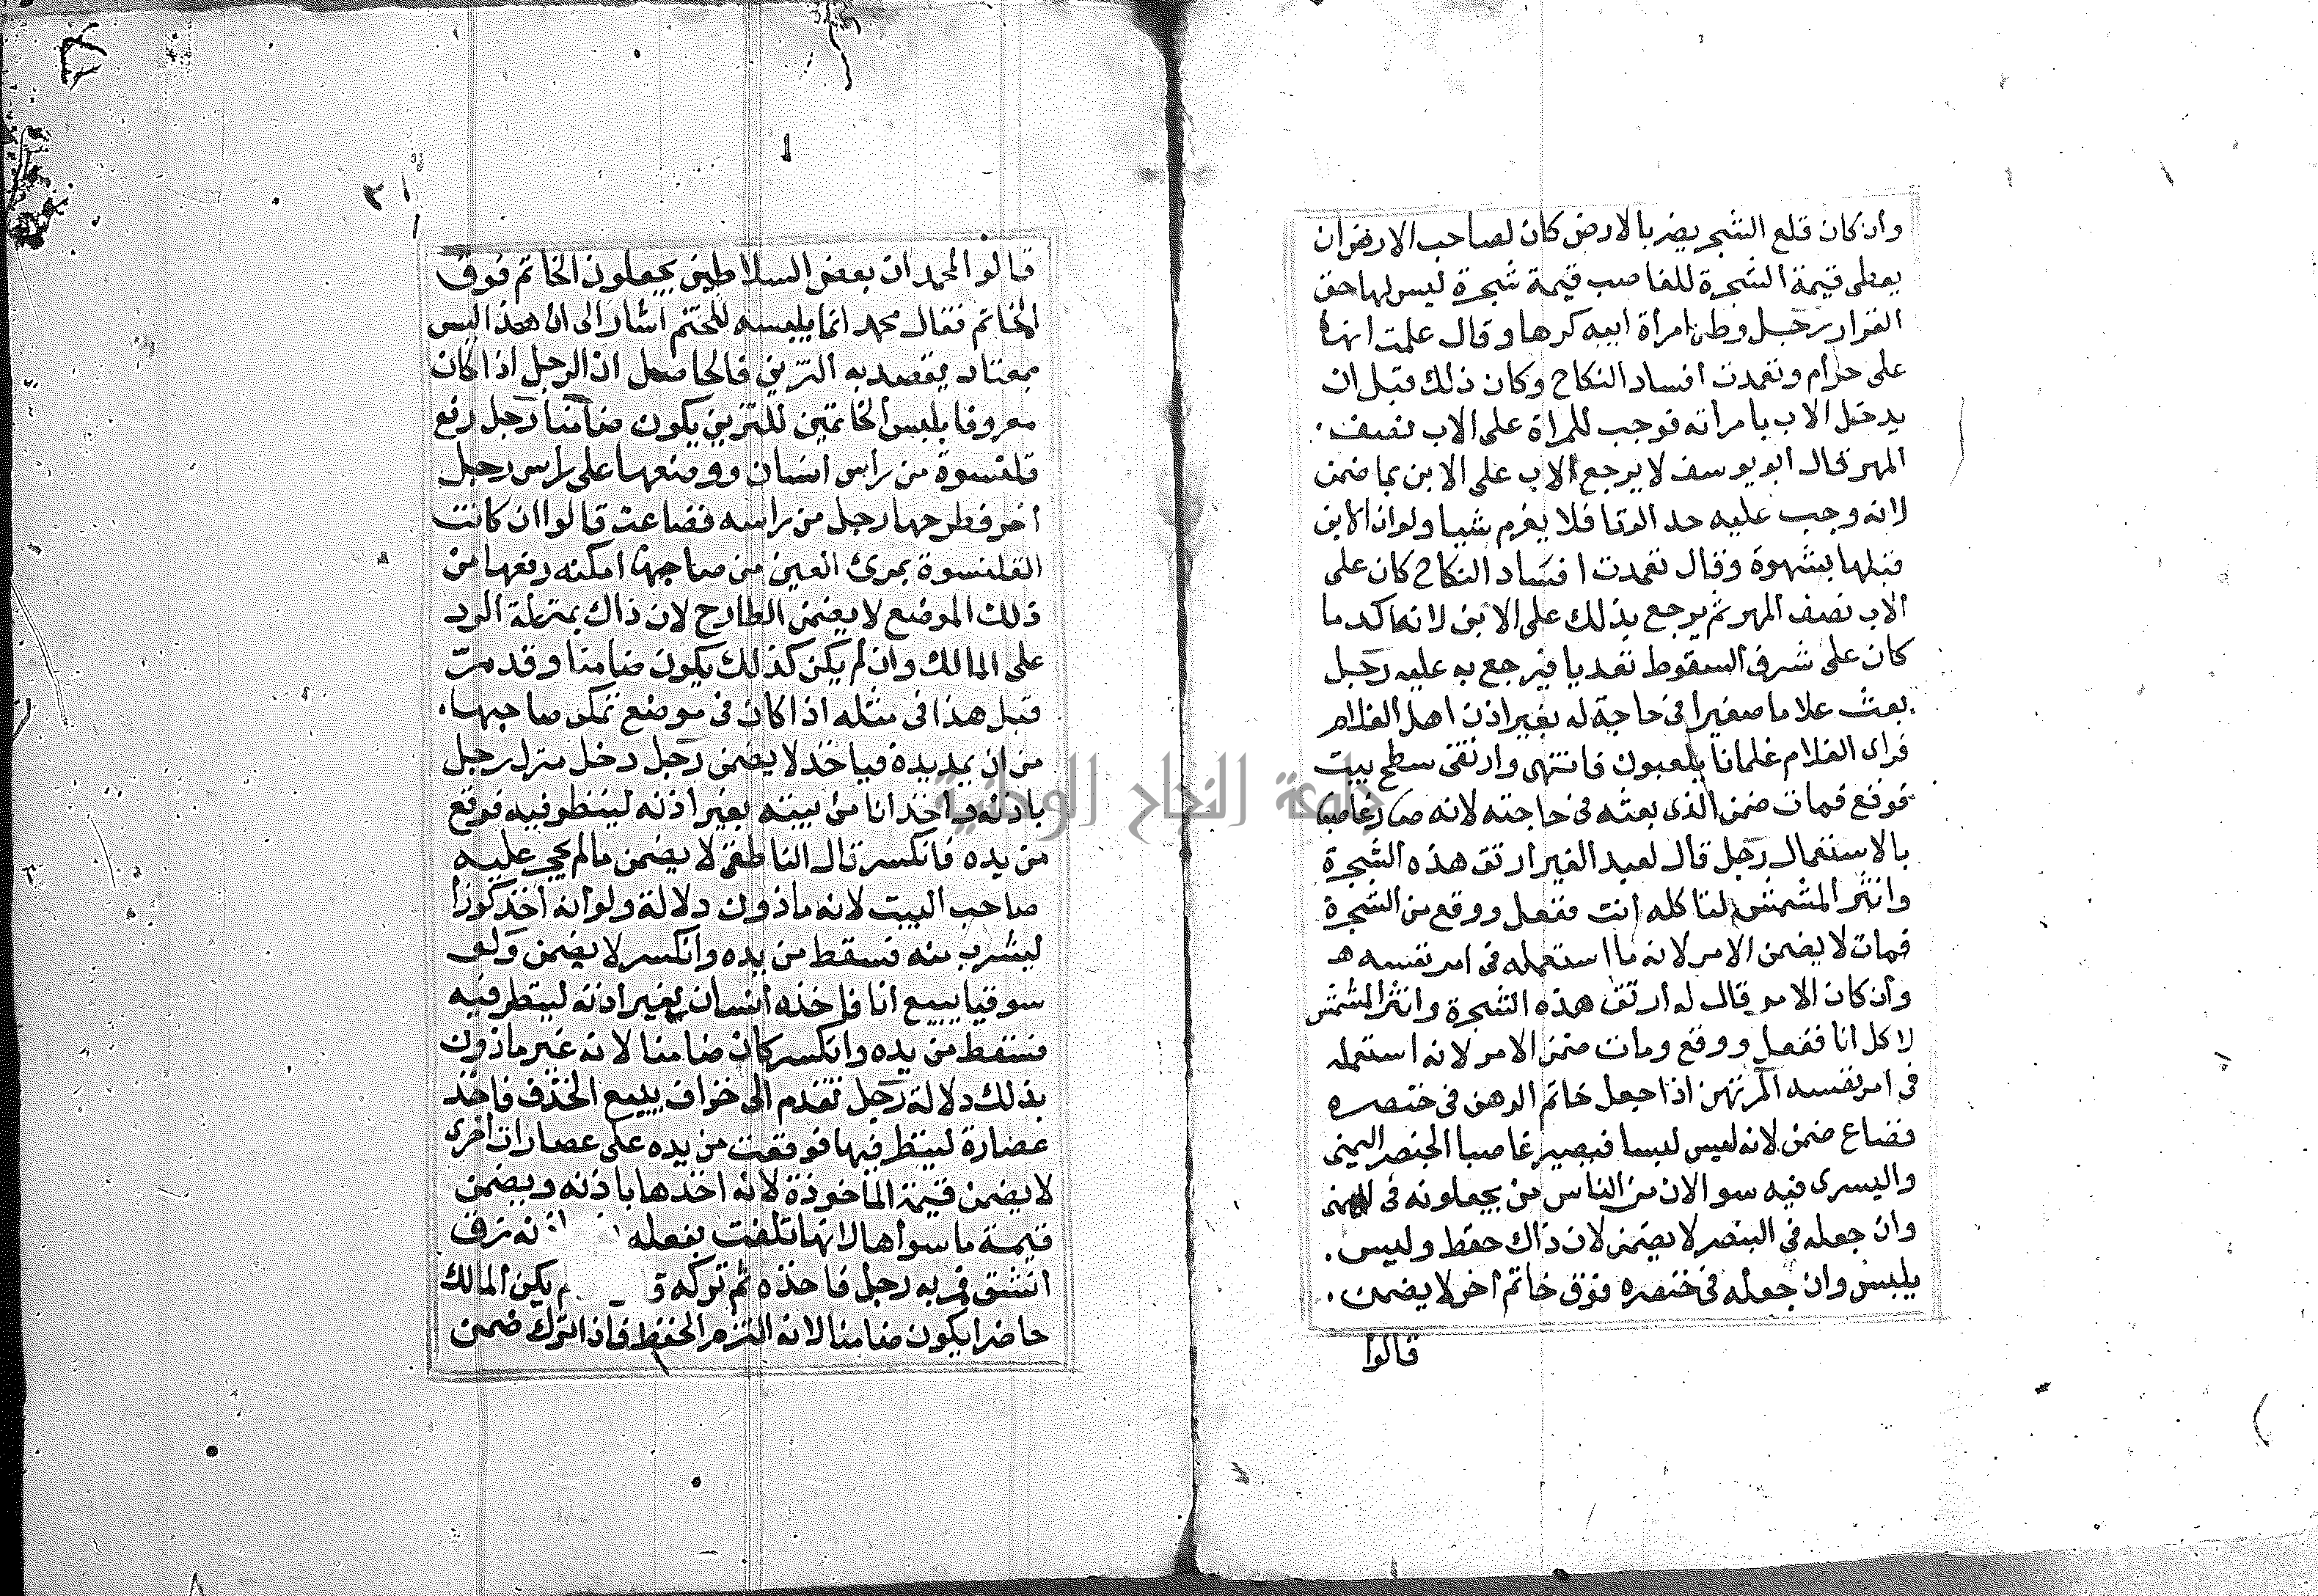 وان كان قلع الشجر يضر بالارض كان لصاحب الارض ان
يعطى قيمة الشجرة للغاصب قيمة شجرة ليس لها حق
القرار رجل وطئ امرأة ابيه كرها وقال علمت انها
على حرام وتعمدت افساد النكاح وكان ذلك قبل ان
يدخل الاب بامراته فوجب للمراة على الاب نصف
المهر قال ابو يوسف لا يرجع الاب على الابن بما ضمن
لانه وجب عليه حد الزنا فلا يغرم شيا ولو ان الابن
قبلها بشهوة وقال تعمدت افساد النكاح كان على
الاب نصف المهر ثم يرجع بذلك على الابن لانه اكد ما
كان على شرف السقوط تعديا فيرجع به عليه رجل
بعث غلاما صغيرا فى حاجة له بغير اذن اهل الغلام
فراى الغلام غلمانا يلعبون فانتهى وارتقى سطح بيت
فوقع فمات ضمن الذى بعثه فى حاجته لانه صار غاصبا
بالاستعمال رجل قال لعبد الغير ارتق هذه الشجرة
وانثر المشمش لتاكله انت ففعل ووقع من الشجرة
فمات لا يضمن الامر لانه ما استعمله فى امر نفسه
وان كان الامر قال له ارتق هذه الشجرة وانثر المشمش
لاكل انا ففعل ووقع ومات ضمن الامر لانه استعمله
فى امر نفسه المرتهن اذا جعل خاتم الرهن فى خنصره
فضاع ضمن لانه لبس لبسا فيصير غاصبا الخنصر اليمنى
واليسرى فيه سوا لان من الناس من يجعلونه فى اليمنى
وان جعله فى البنصر لا يضمن لان ذاك حفظ وليس
يلبس وان جعله فى خنصره فوق خاتم اخر لا يضمن
قالوا
١
٣١
قالوا لمحمد ان بعض السلاطين يجعلون الخاتم فوق
الخاتم فقال محمد انما يلبسه للختم اشار الى ان هذا ليس
بمعتاد يقصد به التزين فالحاصل ان الرجل اذا كان
معروفا بلبس الخاتمين للتزين يكون ضامنا رجل رفع
قلنسوة من راس انسان ووضعها على راس رجل
اخر فطرحها رجل من راسه فضاعت قالوا ان كانت
القلنسوة بمرئ العين من صاحبها امكنه رفعها من
ذلك الموضع لا يضمن الطارح لان ذاك بمنزلة الرد
على المالك وان لم يكن كذلك يكون ضامنا وقد مر
قبل هذا فى مثله اذا كان فى موضع تمكن صاحبها
من ان يمد يده فياخذ لا يضمن رجل دخل منزل رجل
باذنه واخذ انا من بيته بغير اذنه لينظر فيه فوقع
من يده فانكسر قال الناطفى لا يضمن مالم يحجر عليه
صاحب البيت لانه ماذون دلالة ولو انه اخذ كوزا
ليشرب منه فسقط من يده وانكسر لا يضمن ولو
سوقيا يبيع انا فاخذه انسان بغير اذنه لينظر فيه
فسقط من يده وانكسر كان ضامنا لانه غير ماذون
بذلك دلالة رجل تقدم الى خزاف يبيع الخذف فاخذ
غضارة لينظر فيها فوقعت من يده على عضارات اخرى
لا يضمن قيمة الماخوذة لانه اخذها باذنه ويضمن
قيمة ما سواها لانها تلفت بفعله نه زق
انشق فمر به رجل فاخذه ثم تركه و م يكن المالك
حاضرا يكون ضامنا لانه التزم الحفظ فاذا ترك ضمن
جامعة النجاح الوطنية